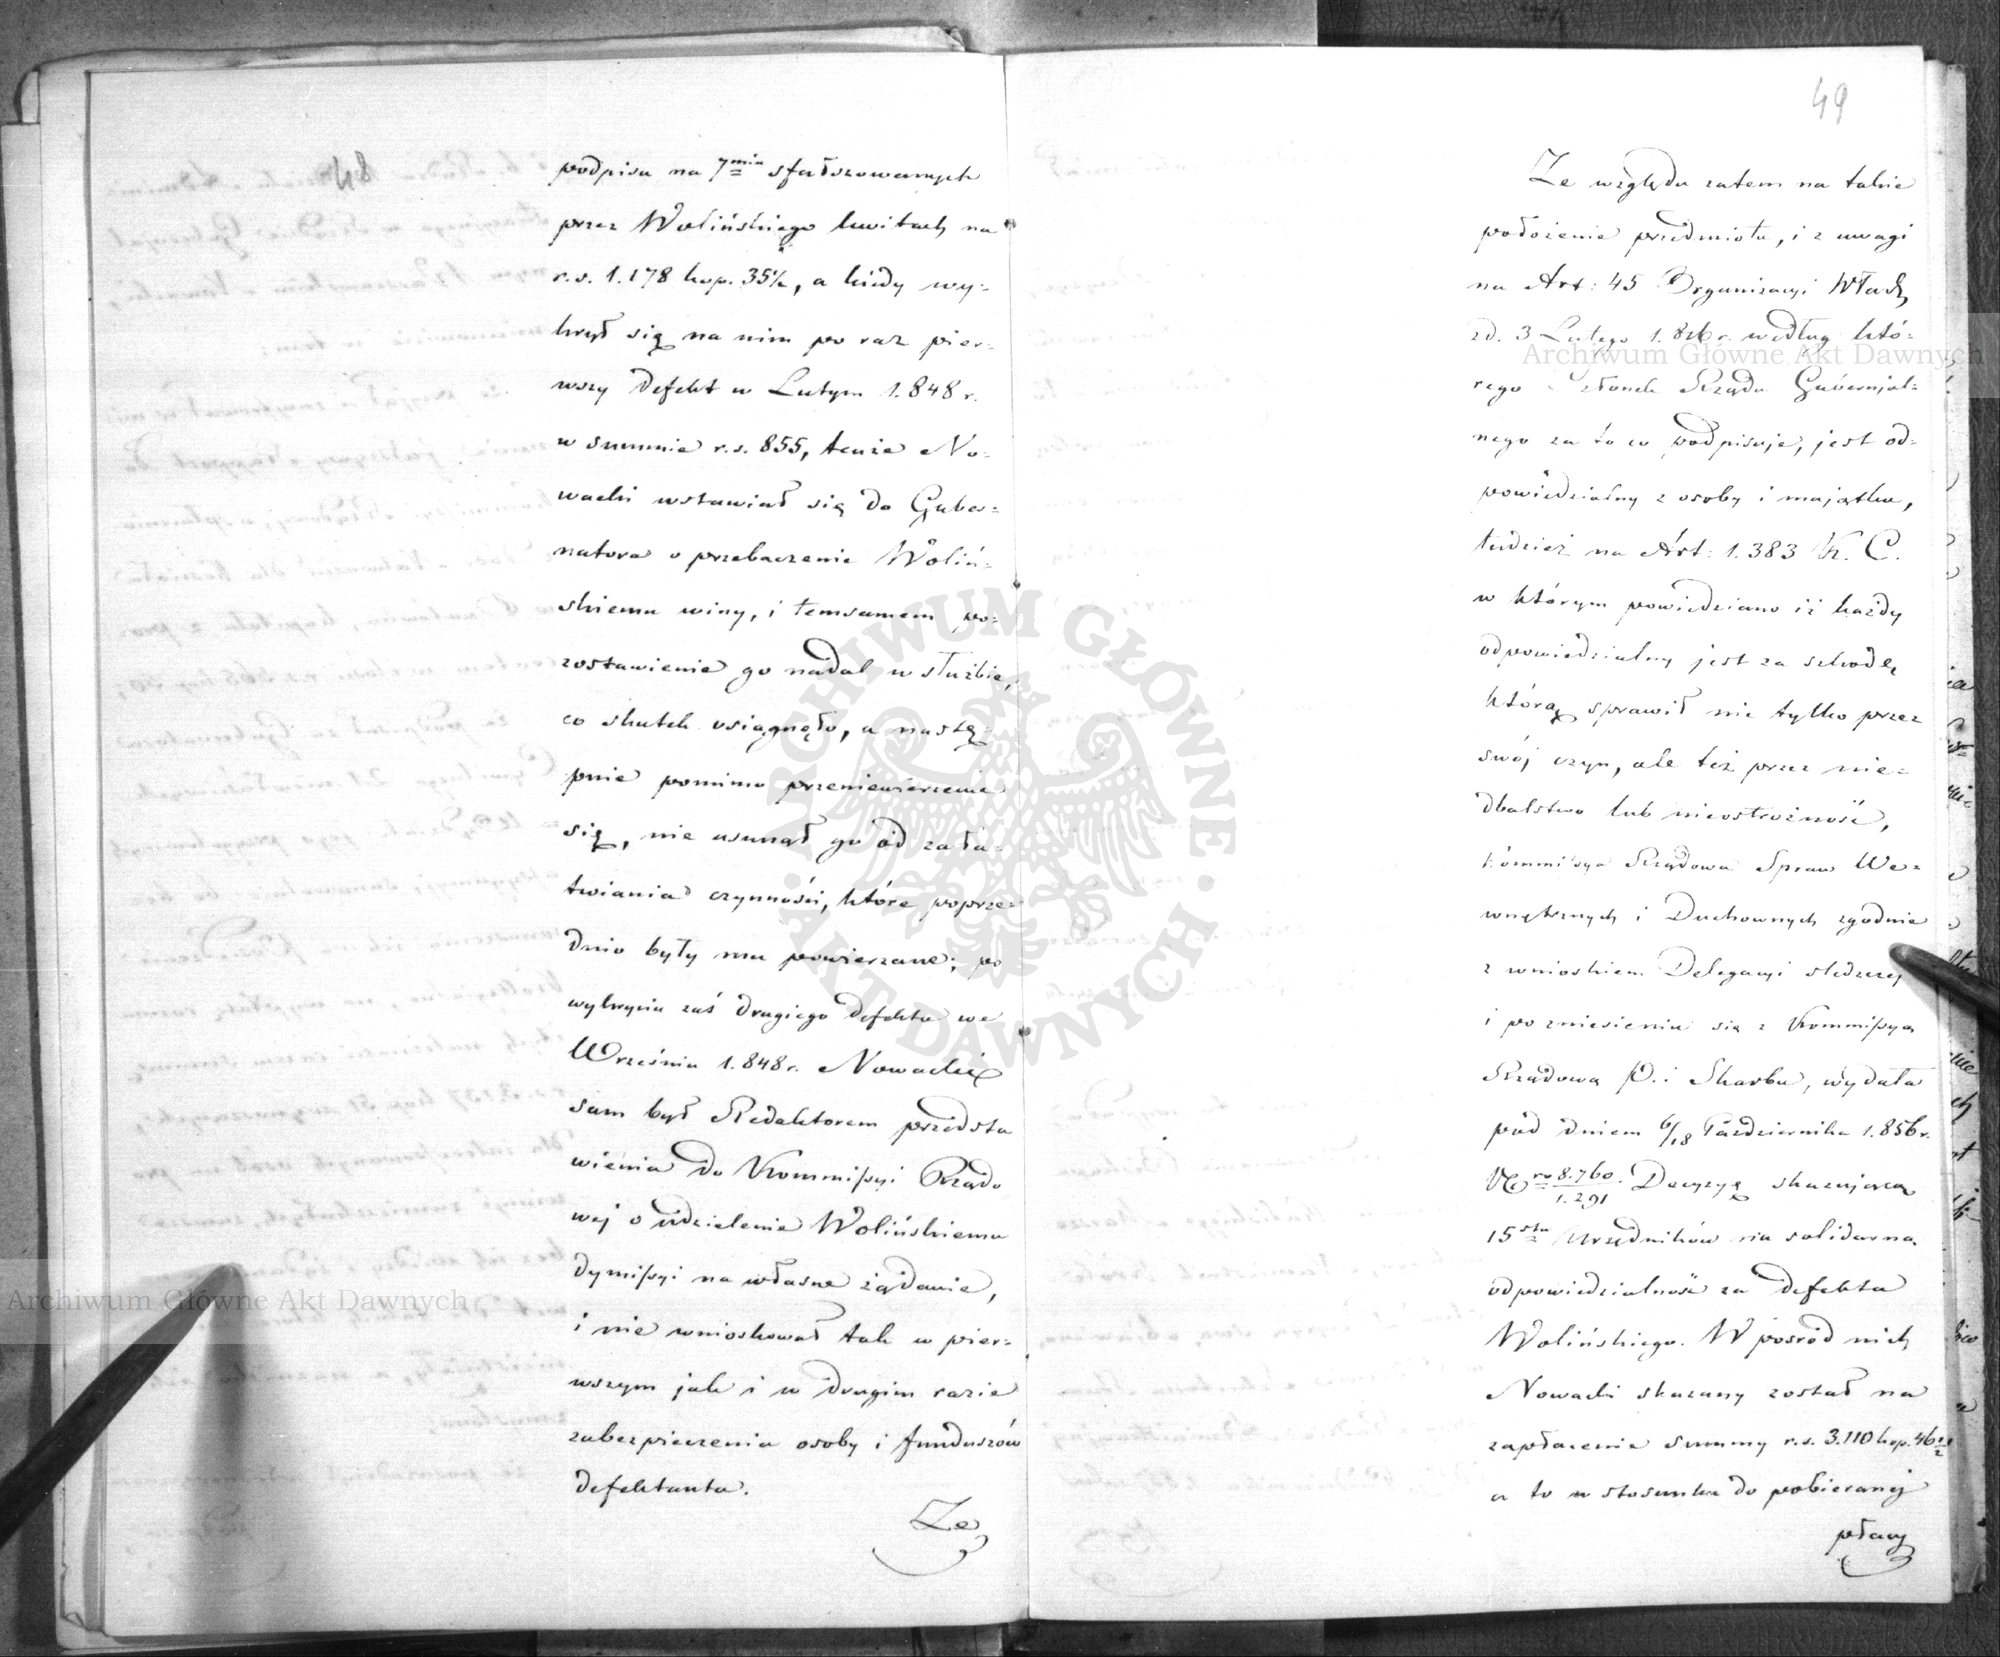 48
podpisu na 7mia sfałszowanych
przez Wolińskiego kwitach na
r.s. 1.178 kop. 35½, a kiedy wy-
krył się na nim po raz pier-
wszy defekt w Lutym 1.848 r.
w summie r.s. 855, tenże No-
wacki wstawiał się do Guber-
natora o przebaczenie Woliń-
skiemu winy, i temsamem po-
zostawienie go nadal w służbie,
co skutek osiągnęło, a nastę-
pnie pomimo przeniewierzenia
się, nie usunął go od zała-
twiania czynności, które poprze-
dnio były mu powierzane; po
wykryciu zaś drugiego defektu we
Wrześniu 1.848 r. Nowacki
sam był Redaktorem przedsta
wienia do Kommissyi Rządo
wej o udzielenie Wolińskiemu
dymissyi na własne żądanie,
i nie wnioskował tak w pier-
wszym jak i w drugim razie
zabezpieczenia osoby i funduszów
defektanta.
Ze
49
Ze względu zatem na takie
położenie przedmiotu, i z uwagi
na Art: 45 Organizacyi Władz
zd. 3 Lutego 1.816 r. według któ-
rego Członek Rządu Gubernjal-
nego za to co podpisuje, jest od-
powiedzialny z osoby i majątku,
tudzież na Art: 1.383 K. C.
w którym powiedziano iż każdy
odpowiedzialny jest za szkodę
którą sprawił nie tylko przez
swój czyn, ale też przez nie-
dbalstwo lub nieostrożność,
Kommissya Rządowa Spraw We-
wnętrznych i Duchownych zgodnie
z wnioskiem Delegacyi śledczej
i po zniesieniu się z Kommissyą
Rządową P. i Skarbu, wydała
pod dniem 6/18 Października 1.856 r.
Nro 8.760/1.291 Decyzyą skazującą
15stu Urzędników na solidarną
odpowiedzialność za defekta
Wolińskiego. W pośród nich
Nowacki skazany został na
zapłacenie summy r.s. 3.110 kop. 46½
a to w stosunku do pobieranej
płacy
Archiwum Główne Akt Dawnych
Archiwum Główne Akt Dawnych
ARCHIWUM GŁÓWNE AKT DAWNYCH